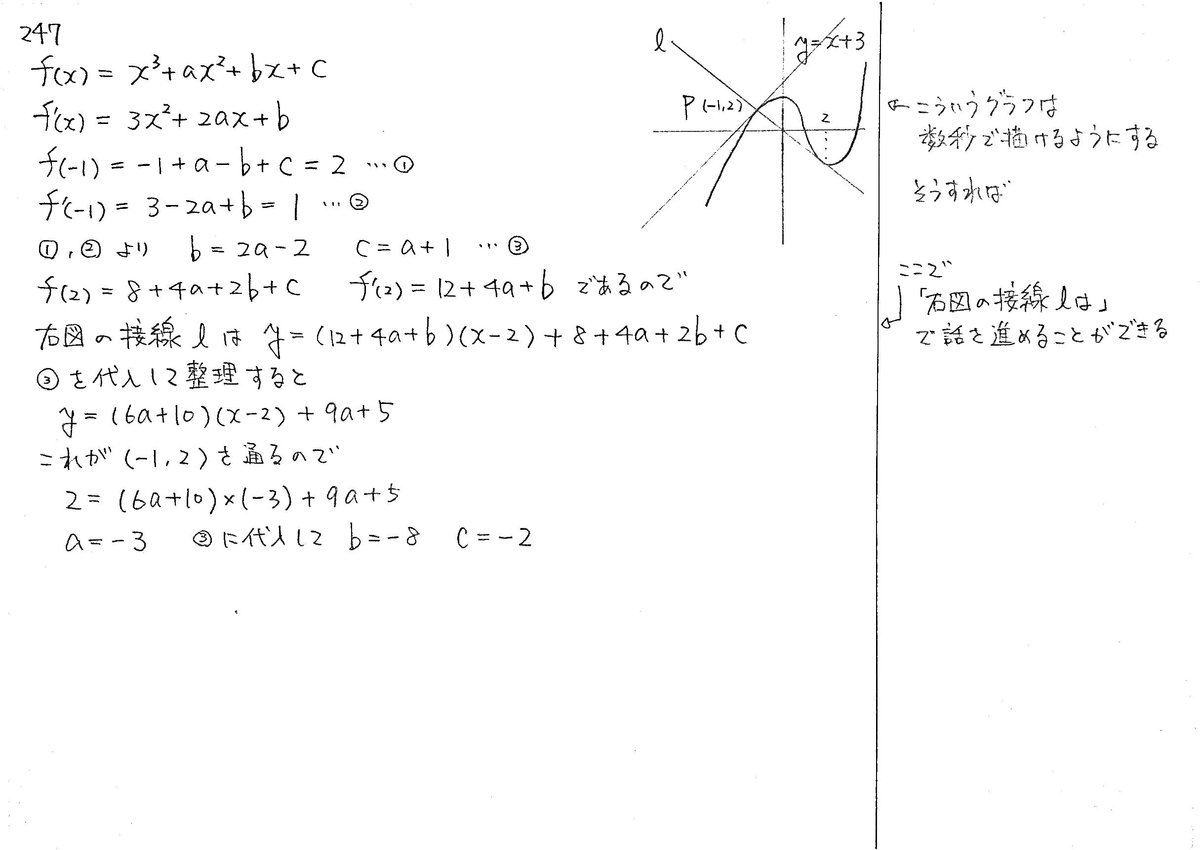 247
f(x) = x³+ax²+bx+c
f'(x) = 3x²+2ax+b
f(-1) = -1+a-b+c = 2 …①
f'(-1) = 3-2a+b = 1 …②
①,②より b=2a-2 c=a+1 …③
f(2)=8+4a+2b+c f'(2)=12+4a+b であるので
右図の接線lは y=(12+4a+b)(x-2)+8+4a+2b+c
③を代入して整理すると
y=(6a+10)(x-2)+9a+5
これが(-1,2)を通るので
2=(6a+10)×(-3)+9a+5
a=-3 ③に代入して b=-8 c=-2
l
y=x+3
P(-1,2)
2
←こういうグラフは
数秒で描けるようにする
そうすれば
ここで
「右図の接線lは」
で話を進めることができる